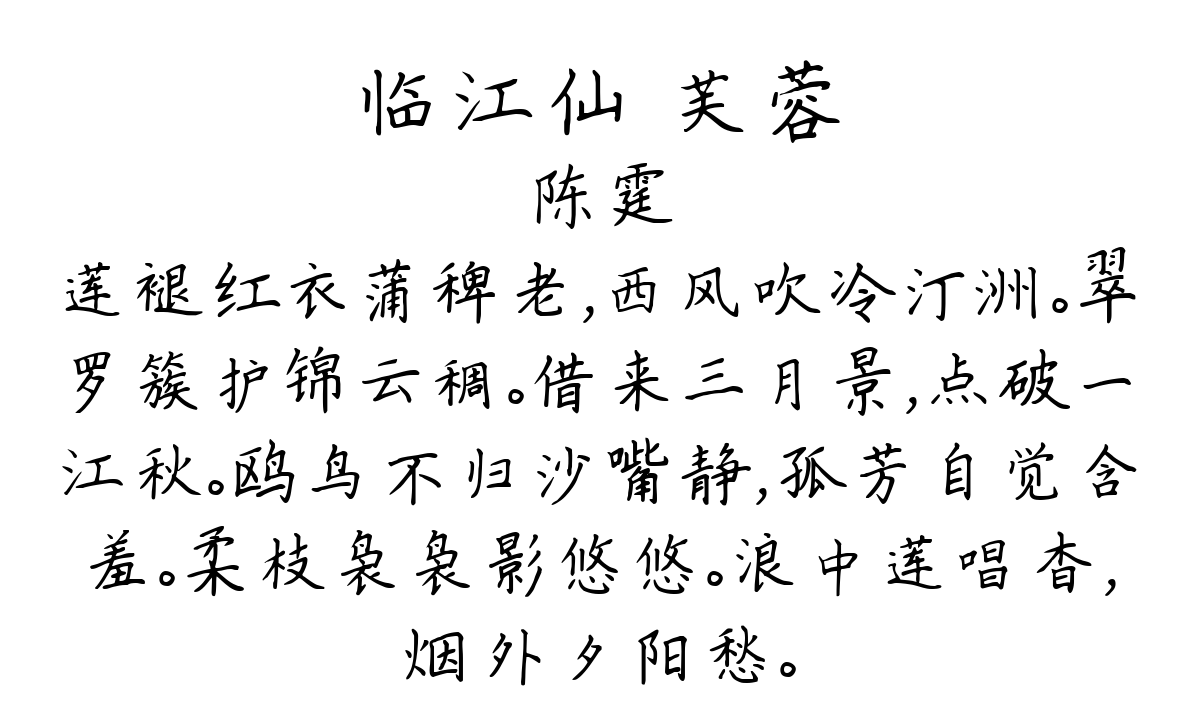 临江仙 芙蓉
陈霆
莲褪红衣蒲稗老,西风吹冷汀洲。翠
罗簇护锦云稠。借来三月景,点破一
江秋。鸥鸟不归沙嘴静,孤芳自觉含
羞。柔枝袅袅影悠悠。浪中莲唱杳,
烟外夕阳愁。